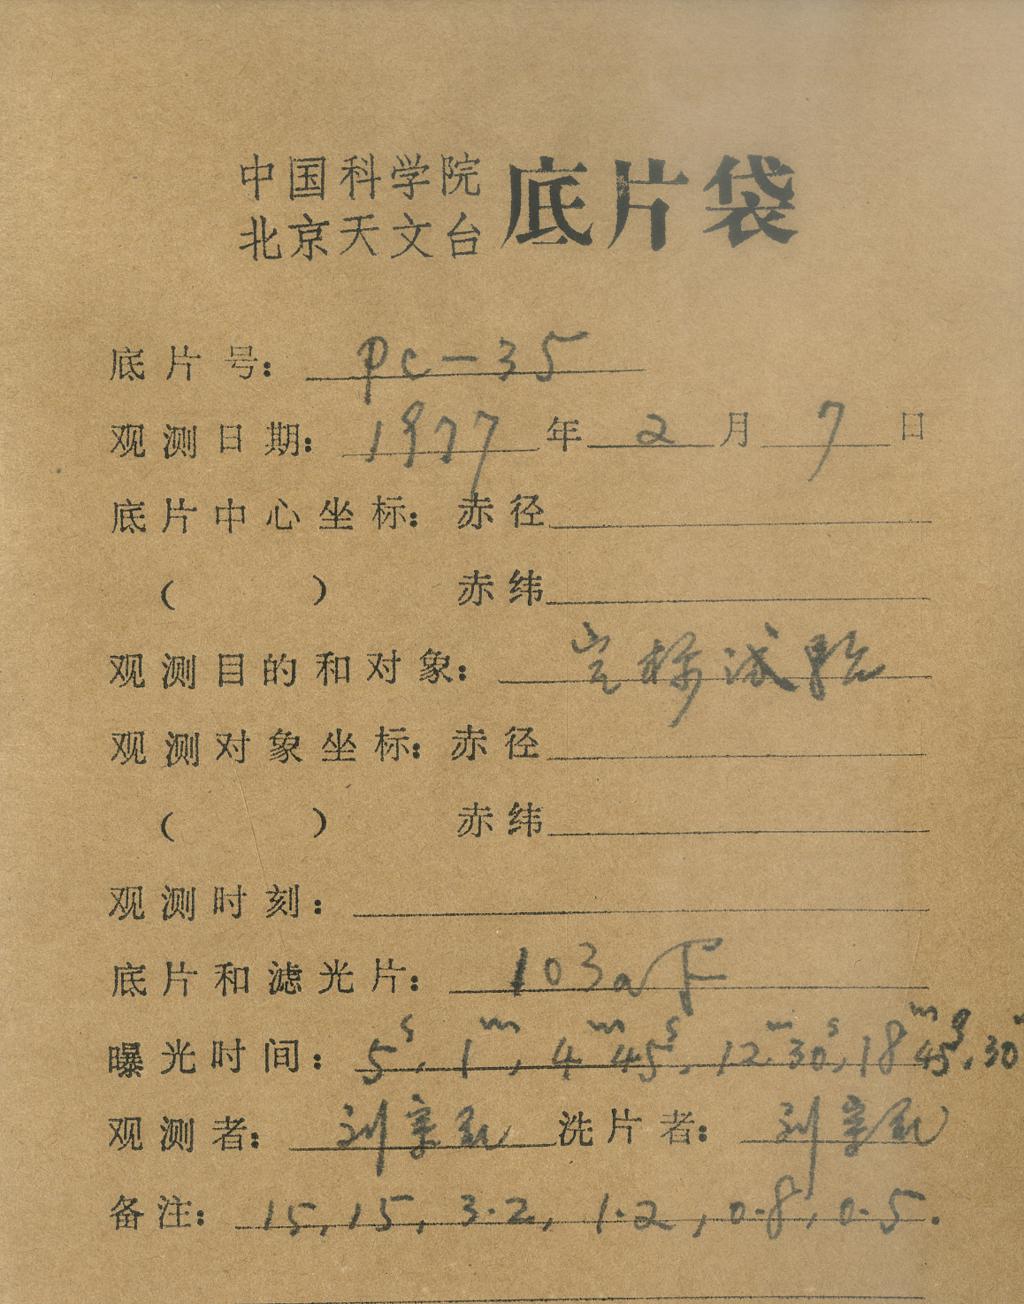 中国科学院
北京天文台 底片袋
底片号: pc-35
观测日期: 1977年2月7日
底片中心坐标: 赤径
( ) 赤纬
观测目的和对象: 定标试验
观测对象坐标: 赤径
( ) 赤纬
观测时刻:
底片和滤光片: 103aF
曝光时间: 5s, 1m, 4m45s, 12m30s, 18m45s, 30m
观测者: 刘 洗片者: 刘
备注: 15, 15, 3.2, 1.2, 0.8, 0.5.